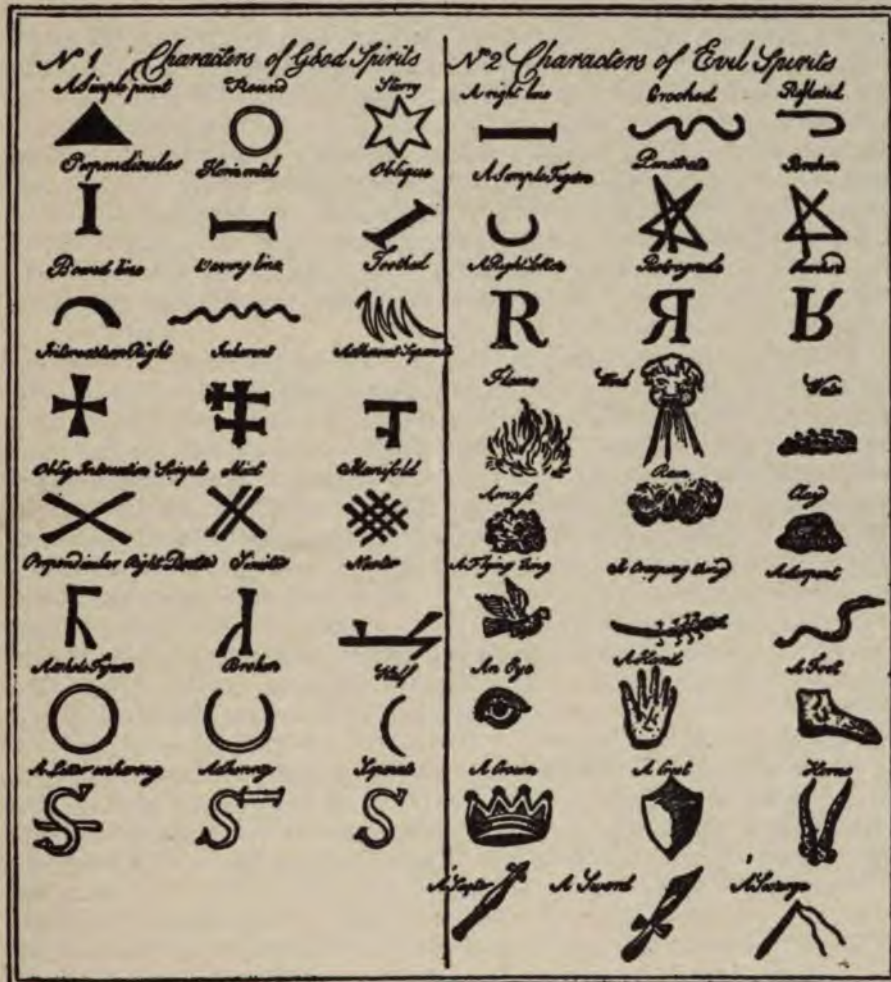 Nº 1 Characters of Good Spirits
A Simple point Round Starry
Perpendicular Horizontal Oblique
Bowed line Waving line Toothed
Intersection Right Inherent Adherent Separate
Obliq Intersection Simple Mixt Manifold
Perpendicular Right Dexter Sinister Neuter
A whole Figure Broken Half
A Letter inhering Adhering Separate
Nº 2 Characters of Evil Spirits
A right line Crooked Reflexed
A Simple Figure Penetrate Broken
A Right Letter Retrograde
R Я
Flame Wind Water
A mass Rain Clay
A Flying thing A Creeping thing A Serpent
An Eye A Hand A Foot
A Crown A Crest Horns
A Scepter A Sword A Scourge